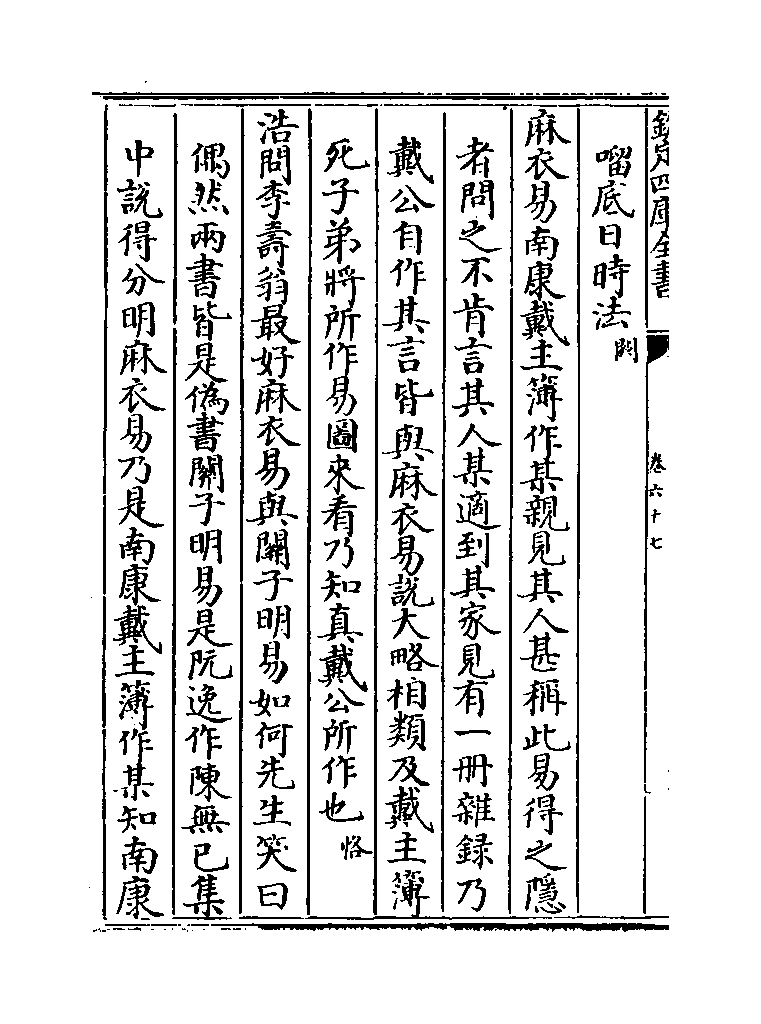 欽定四庫全書
卷六十七
㗰底日時法閎
麻衣易南康戴主簿作某親見其人甚稱此易得之隱
者問之不肯言其人某適到其家見有一冊雜録乃
戴公自作其言皆與麻衣易說大略相類及戴主簿
死子弟將所作易圖來看乃知真戴公所作也㤩
浩問李壽翁最好麻衣易與關子明易如何先生笑曰
偶然兩書皆是偽書關子明易是阮逸作陳無已集
中說得分明麻衣易乃是南康戴主簿作某知南康